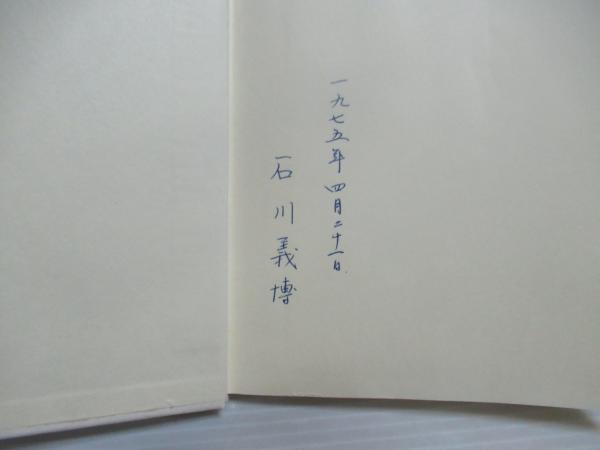 一九七五年 四月二十一日
石川義博